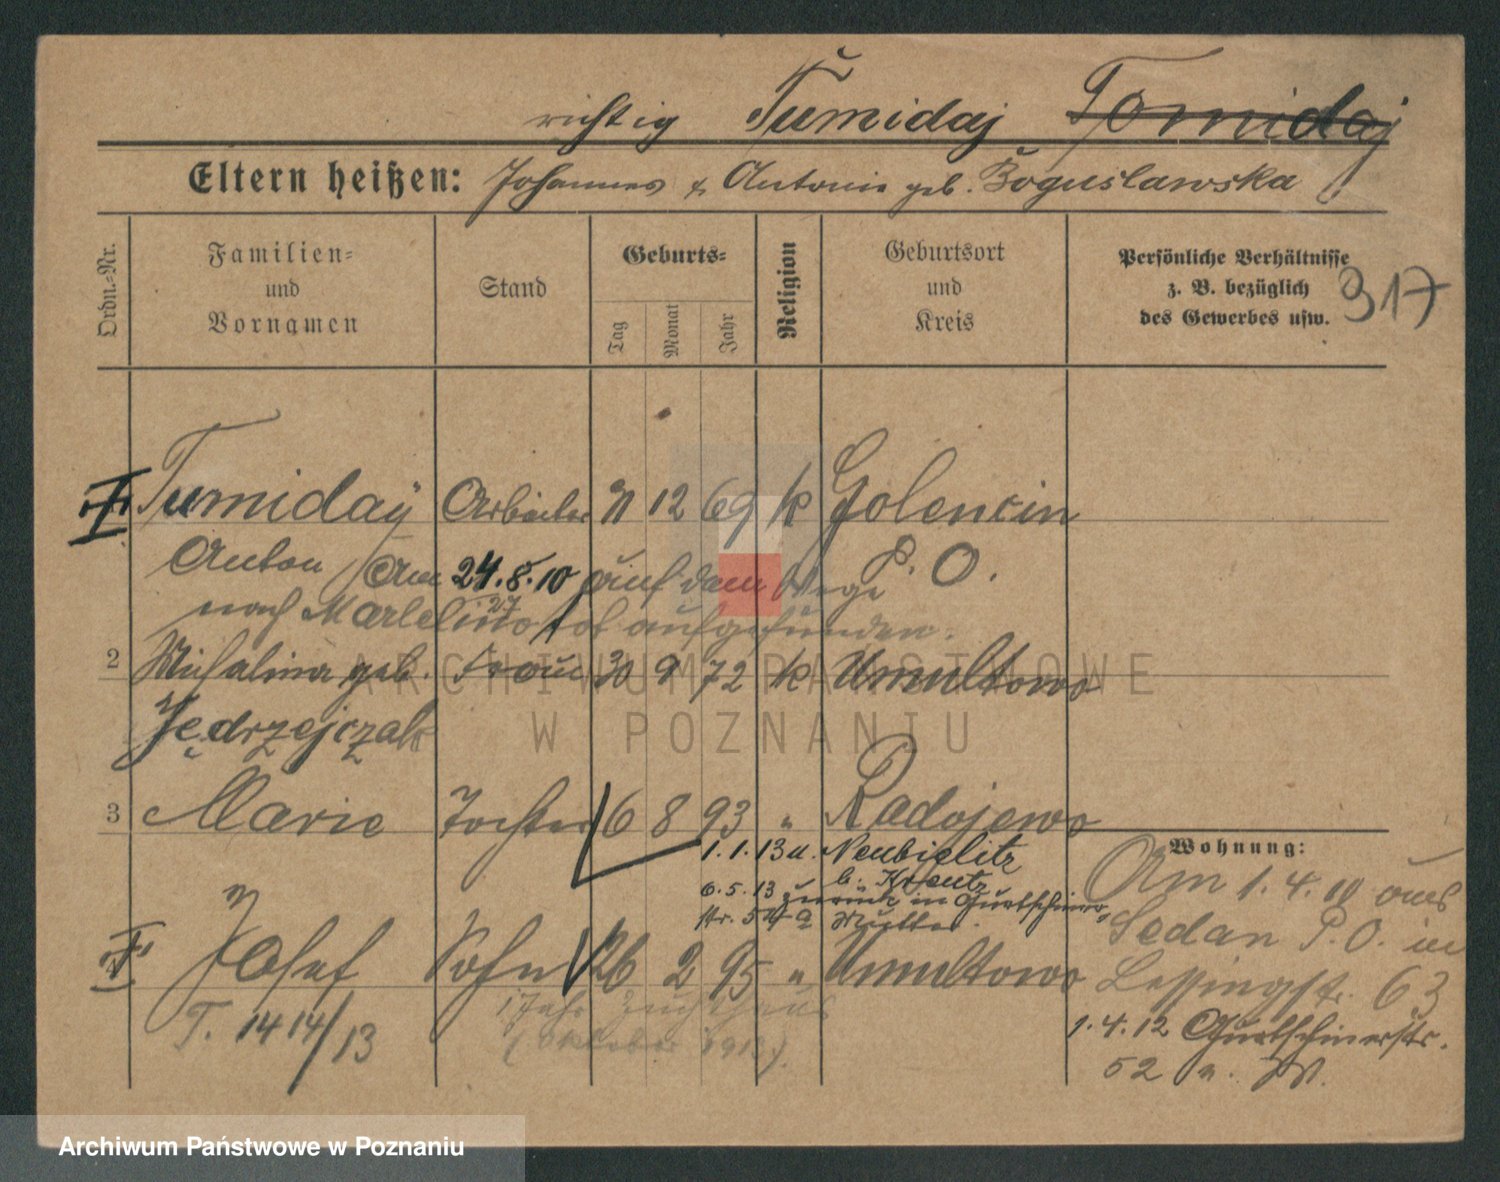 richtig Tumidaj Tomidaj
Eltern heißen: Johannes & Antonie geb. Boguslawska
Ordn.-Nr.
Familien- und Vornamen
Stand
Geburts-
Tag
Monat
Jahr
Religion
Geburtsort und Kreis
Persönliche Verhältnisse
z. B. bezüglich
des Gewerbes usw.
317
Tumidaj Arbeiter 31 12 69 k Golencin
Anton Am 24.8.10 auf dem Wege P. O.
27
nach Marlelino tot aufgefunden.
2 Michalina geb. Frau 30 9 72 k Umultowo
Jędrzejczak
3 Marie Tochter 6 8 93 " Radojewo
1.1.13 u. Neubielitz
b. Kreutz
6.5.13 zurück in Gurtschiner-
str. 52 a Mutter.
4 Josef Sohn 26 2 95 " Umultowo
T. 1414/13
1 Jahr Zuchthaus
(Oktober 1913).
Wohnung:
Am 1.4.10 aus
Sedan P.O. in
Lessingstr. 63
1.4.12 Gurtschinerstr.
52 n. W.
ARCHIWUM PAŃSTWOWE
W POZNANIU
Archiwum Państwowe w Poznaniu